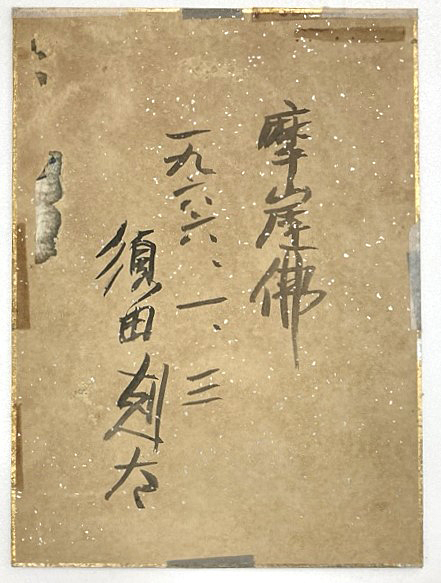 摩崖佛
一九六六、一、三
須田剋太